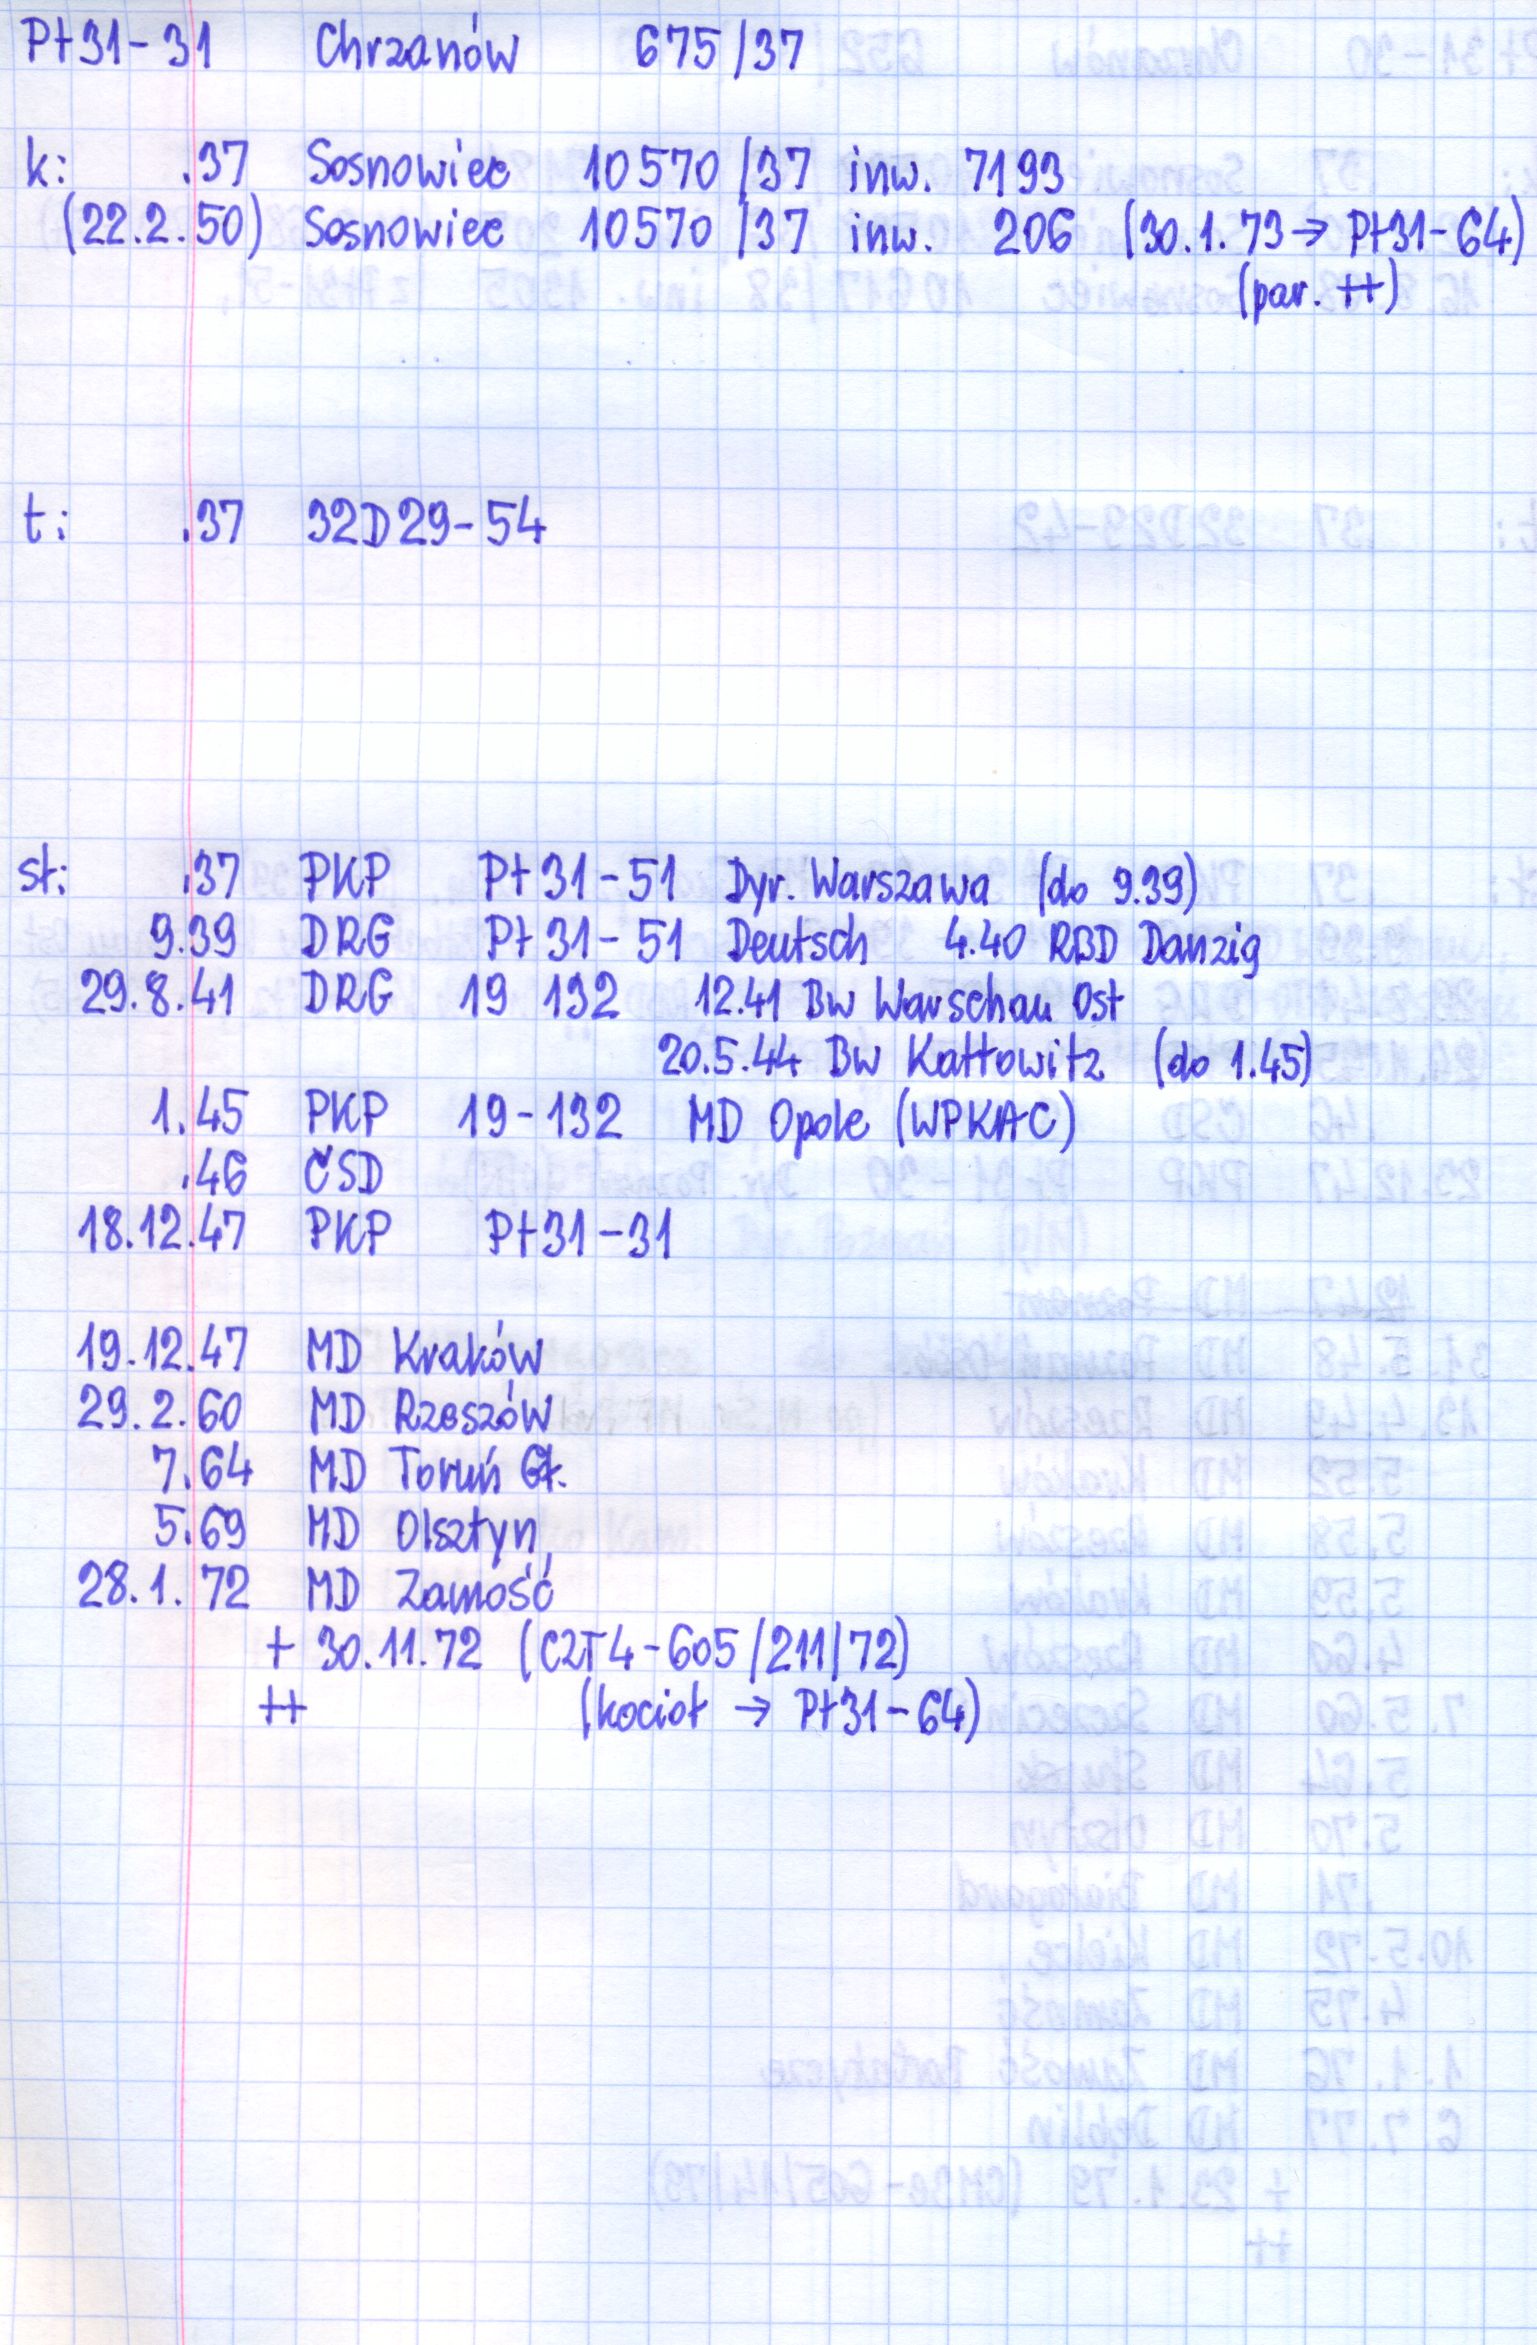 Pt31-31 Chrzanów 675/37
k: .37 Sosnowiec 10570/37 inw. 7193
(22.2.50) Sosnowiec 10570/37 inw. 206 (30.1.73→ Pt31-64)
(par. ++)
t: .37 32D29-54
st: .37 PKP Pt31-51 Dyr. Warszawa (do 9.39)
9.39 DRG Pt31-51 Deutsch 4.40 RBD Danzig
29.8.41 DRG 19 132 12.41 Bw Warschau Ost
20.5.44 Bw Kattowitz (do 1.45)
1.45 PKP 19-132 MD Opole (WPKAC)
.46 ČSD
18.12.47 PKP Pt31-31
19.12.47 MD Kraków
29.2.60 MD Rzeszów
7.64 MD Toruń Gł.
5.69 MD Olsztyn
28.1.72 MD Zamość
+ 30.11.72 (CZT4-605/211/72)
++ (kocioł → Pt31-64)